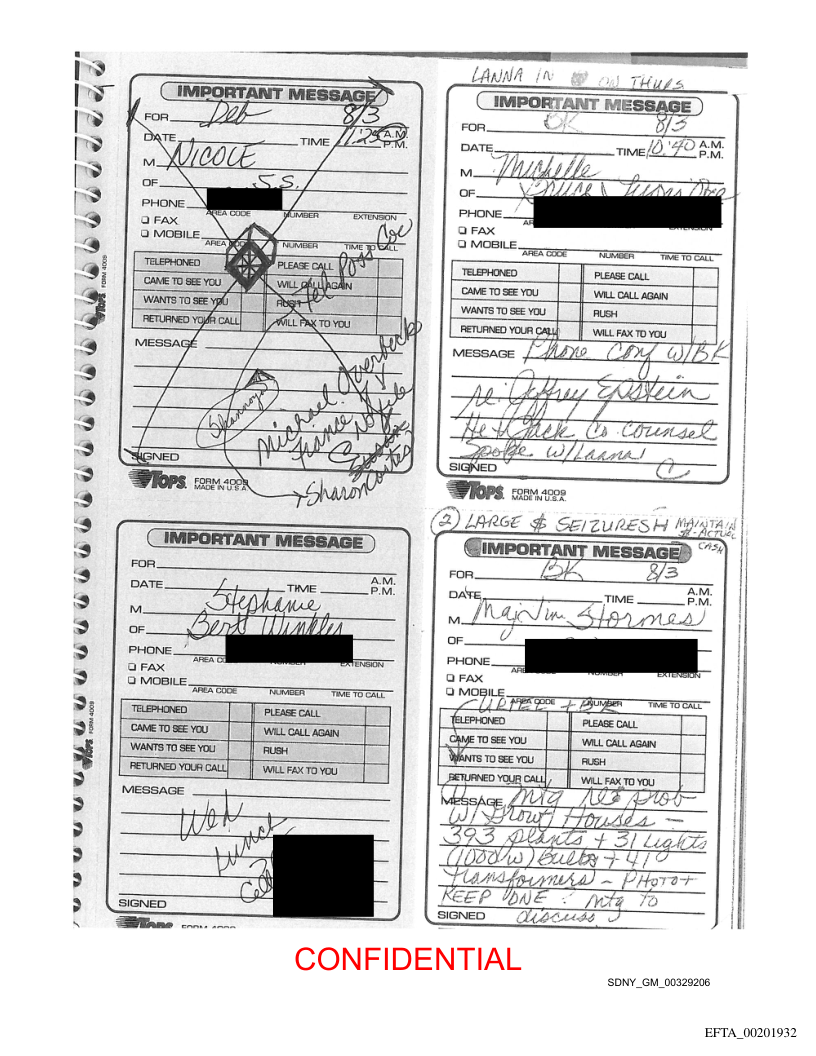 IMPORTANT MESSAGE
FOR Deb 8/3
DATE TIME 11:25 A.M.
P.M.
M NICOLE
OF S.S.
PHONE
AREA CODE NUMBER EXTENSION
FAX
MOBILE
AREA CODE NUMBER TIME TO CALL
TELEPHONED PLEASE CALL
CAME TO SEE YOU WILL CALL AGAIN
WANTS TO SEE YOU RUSH
RETURNED YOUR CALL WILL FAX TO YOU
MESSAGE
Michael Overbeck
France
Sharon
SIGNED
TOPS FORM 4009
MADE IN U.S.A.
LANNA IN ON THURS
IMPORTANT MESSAGE
FOR BK 8/3
DATE TIME 10:40 A.M.
P.M.
M Michelle
OF Bruce
PHONE
EXTENSION
FAX
MOBILE
AREA CODE NUMBER TIME TO CALL
TELEPHONED PLEASE CALL
CAME TO SEE YOU WILL CALL AGAIN
WANTS TO SEE YOU RUSH
RETURNED YOUR CALL WILL FAX TO YOU
MESSAGE Phone Conf w/BK
re: Jeffrey Epstein
Co. Counsel
Spoke w/Lanna
SIGNED
TOPS FORM 4009
MADE IN U.S.A.
TOPS FORM 4009
IMPORTANT MESSAGE
FOR
DATE TIME A.M.
P.M.
M Stephanie
OF Bert Winkler
PHONE
AREA CODE NUMBER EXTENSION
FAX
MOBILE
AREA CODE NUMBER TIME TO CALL
TELEPHONED PLEASE CALL
CAME TO SEE YOU WILL CALL AGAIN
WANTS TO SEE YOU RUSH
RETURNED YOUR CALL WILL FAX TO YOU
MESSAGE
Wed
Lunch
Cell
SIGNED
TOPS FORM 4009
(2) LARGE $ SEIZURES MAINTAIN
ACTUAL
CASH
IMPORTANT MESSAGE
FOR BK 8/3
DATE TIME A.M.
P.M.
M Maj Jim Stormes
OF
PHONE
NUMBER EXTENSION
FAX
MOBILE
AREA CODE NUMBER TIME TO CALL
TELEPHONED PLEASE CALL
CAME TO SEE YOU WILL CALL AGAIN
WANTS TO SEE YOU RUSH
RETURNED YOUR CALL WILL FAX TO YOU
MESSAGE mtg re: prob
w/Grow Houses -
393 plants + 31 Lights
(1000 w) bulbs + 41
transformers - PHOTO +
KEEP ONE : mtg TO
SIGNED discuss
CONFIDENTIAL
SDNY_GM_00329206
EFTA_00201932